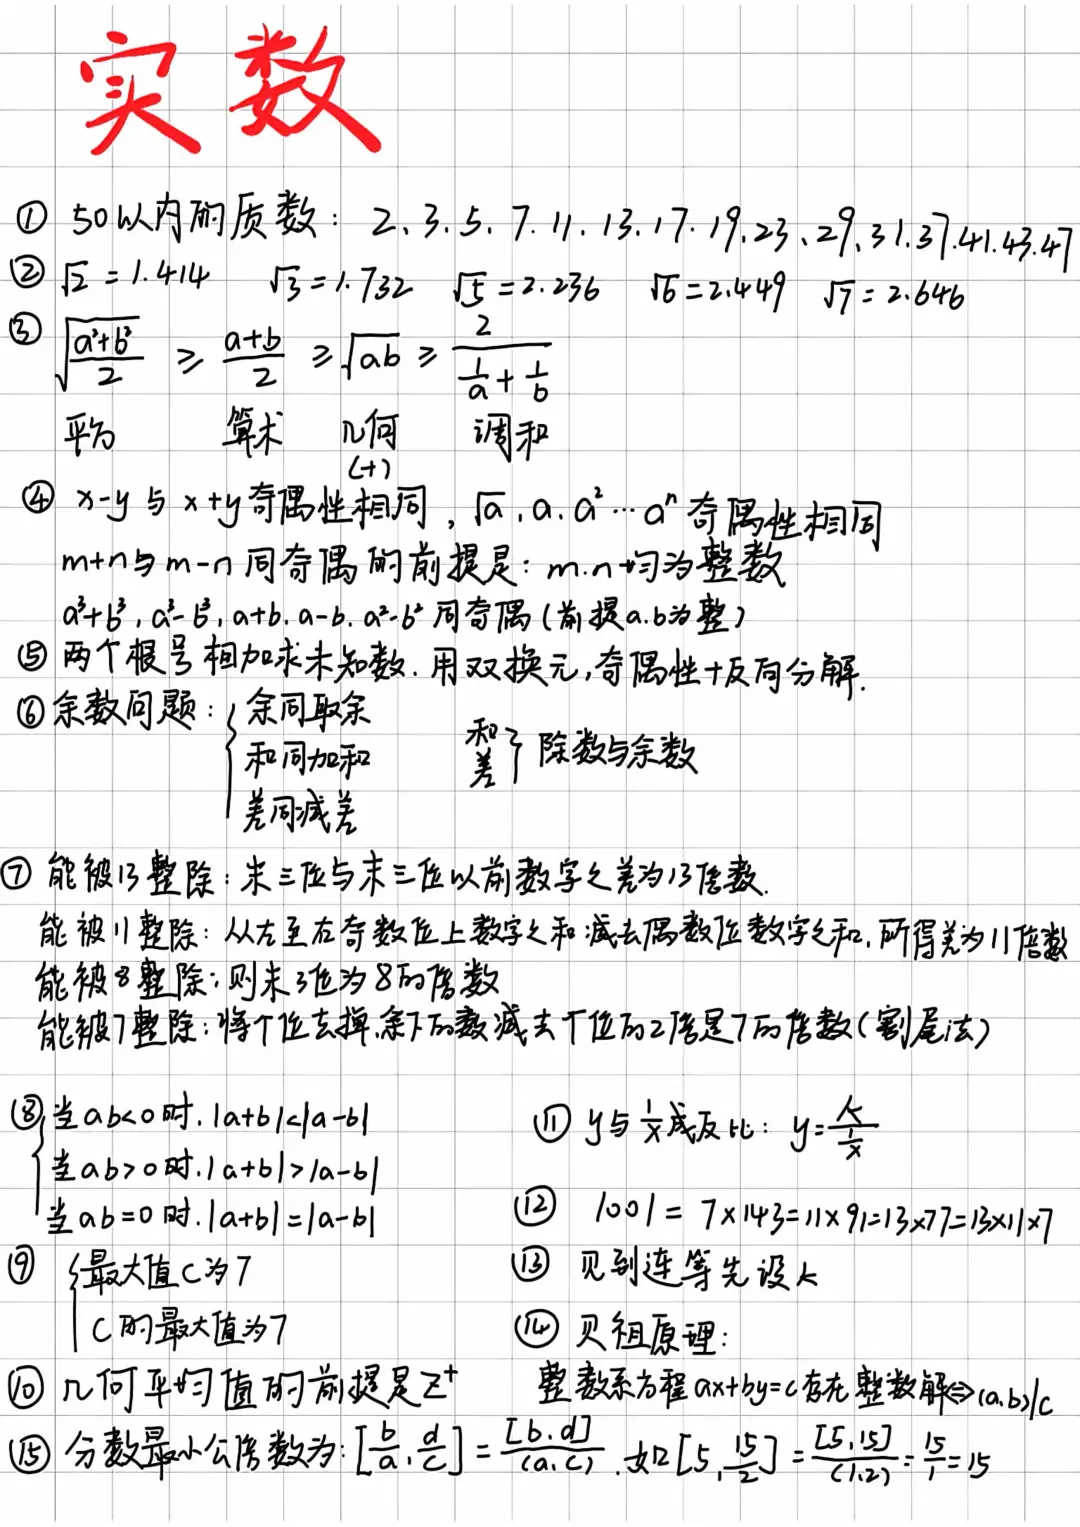 实数
① 50以内的质数：2、3、5、7、11、13、17、19、23、29、31、37、41、43、47
② √2=1.414 √3=1.732 √5=2.236 √6=2.449 √7=2.646
③ √((a²+b²)/2) ≥ (a+b)/2 ≥ √ab ≥ 2/(1/a+1/b)
平方 算术 几何 调和
(+)
④ x-y与x+y奇偶性相同，√a、a、a²…aⁿ奇偶性相同
m+n与m-n同奇偶的前提是：m、n均为整数
a³+b³，a³-b³，a+b、a-b、a²-b²同奇偶(前提a、b为整)
⑤ 两个根号相加求未知数、用双换元，奇偶性+反向分解.
⑥ 余数问题：{余同取余
和同加和 和差} 除数与余数
差同减差
⑦ 能被13整除：末三位与末三位以前数字之差为13倍数.
能被11整除：从左至右奇数位上数字之和减去偶数位数字之和，所得差为11倍数
能被8整除：则末3位为8的倍数
能被7整除：将个位去掉，余下的数减去个位的2倍是7的倍数(割尾法)
⑧ {当ab<0时.|a+b|<|a-b|
当ab>0时.|a+b|>|a-b|
当ab=0时.|a+b|=|a-b|
⑨ {最大值C为7
C的最大值为7
⑩ 几何平均值的前提是Z⁺
⑪ y与1/x成反比：y=k/(1/x)
⑫ 1001=7×143=11×91=13×77=13×11×7
⑬ 见到连等先设k
⑭ 贝祖原理：
整数系方程ax+by=c存在整数解⇔(a.b)|c
⑮ 分数最小公倍数为：[b/a, d/c]=[b.d]/(a.c). 如[5, 15/2]=[5,15]/(1.2)=15/1=15